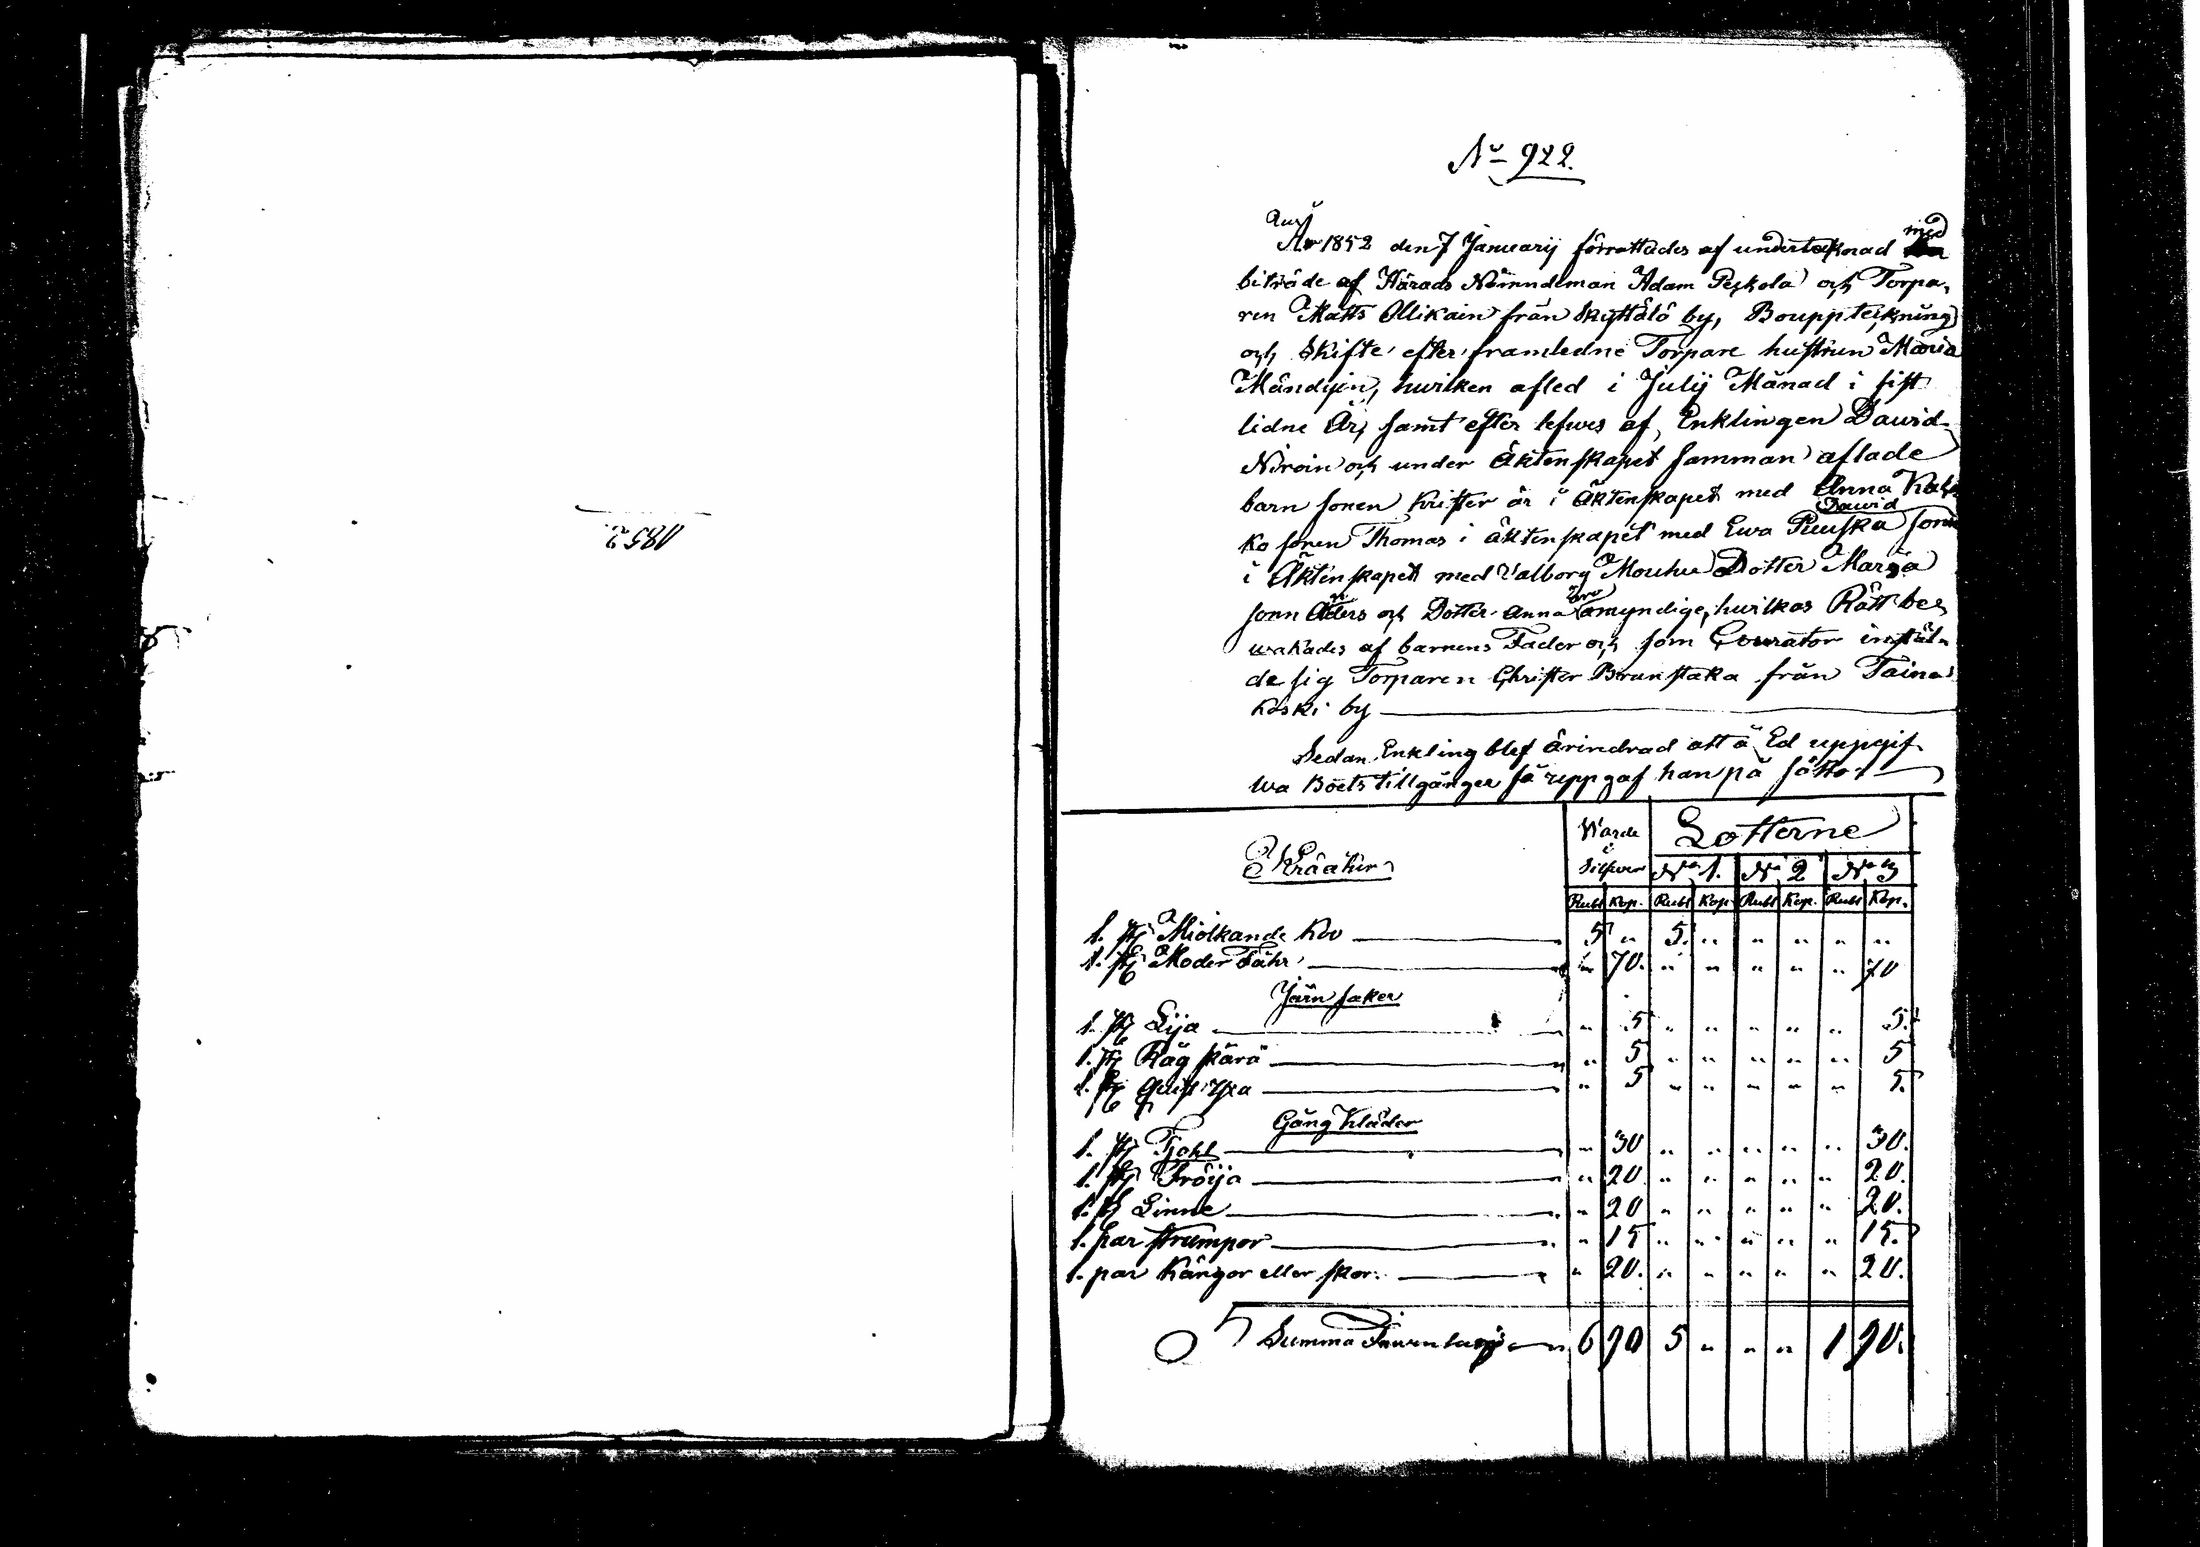 1852.
No 922.
År 1852 den 7 Januarij förrättades af undertecknad med
biträde af Härads Nämndeman Adam Peskola och Torpa-
ren Matts Ollikain från Skyttälä by, Bouppteckning
och Skifte efter framledne Torpare hustrun Maria
Mändyin, hwilken afled i Julij Månad i sist
lidne År, samt efter lefwes af, Enklingen Dawid
Niroin och under Äktenskapet samman aflade
barn sonen Krister är i Äktenskapet med Anna
ko sonen Thomas i äktenskapet med Ewa Ruuska Dawid
i Äktenskapet med Valborg Mouhu Dotter Marja
sonn Anders och Dotter Anna omyndige, hwilkas Rätt be-
wakades af barnens Fader och som Courator instäl-
de sig Torparen Christer Brunstaka från Taina
koski by
Sedan Enkling blef ärindrad att å Ed uppgif-
wa Boets tillgångar så uppgaf han på sätt:
Kräatur
Wärde i Silfwer
Lotterne
No 1. No 2 No 3
Rubl Kop. Rubl Kop Rubl Kop. Rubl Kop.
1. st Miölkande Ko 5 " 5. " " " " "
1. st Moder Fåhr " 70. " " " " " 70
Järn saker
1. st Lija " 5 " " " " " 5.
1. st Råg skärä " 5 " " " " " 5
1. st " 5 " " " " " 5.
Gång Kläder
1. st Tjohl " 30 " " " " " 30.
1. st Tröija " 20 " " " " " 20.
1. st Linne " 20 " " " " " 20.
1. par strumpor " 15 " " " " " 15.
1. par Kängor eller skor. " 20. " " " " " 20.
Summa 6 70 5 " " " 1 70.